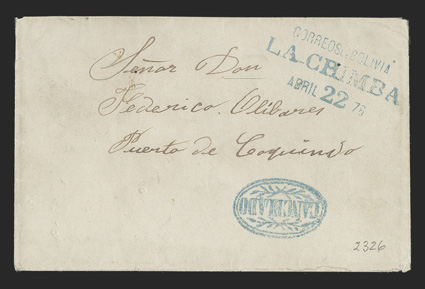 CORREOS. BOLIVIA
LA-CHIMBA
ABRIL 22 76
Señor Don
Federico Olibares
Puerto de Coquimbo
CANCELADO
2326